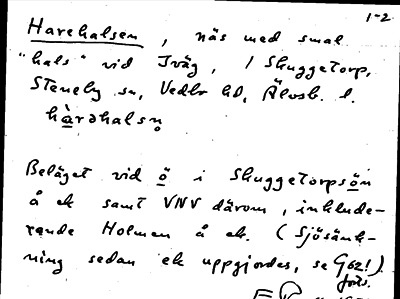 1-2
Harehalsen, näs med smal
"hals" vid Iväg, / Skuggetorp,
Steneby sn, Vedbo hd, Älvsb. l.
hàrəhalsn̥
Beläget vid ö i Skuggetorpsön
å ek samt VNV därom, inklude-
rande Holmen å ek. (Sjösänk-
ning sedan ek uppgjordes, se G62!).
forts.